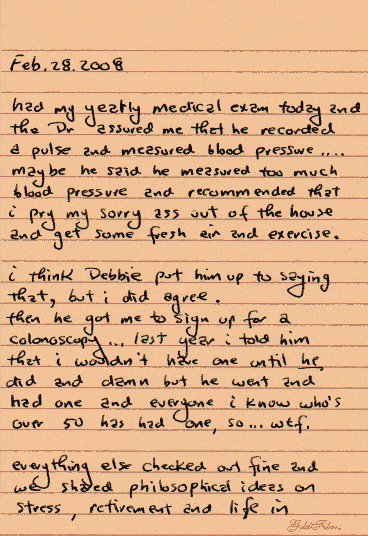 Feb. 28. 2008
had my yearly medical exam today and
the Dr assured me that he recorded
a pulse and measured blood pressure....
maybe he said he measured too much
blood pressure and recommended that
i pry my sorry ass out of the house
and get some fresh air and exercise.
i think Debbie put him up to saying
that, but i did agree.
then he got me to sign up for a
colonoscopy... last year i told him
that i wouldn't have one until he
did and damn but he went and
had one and everyone i know who's
over 50 has had one, so... wtf.
everything else checked out fine and
we shared philosophical ideas on
stress, retirement and life in